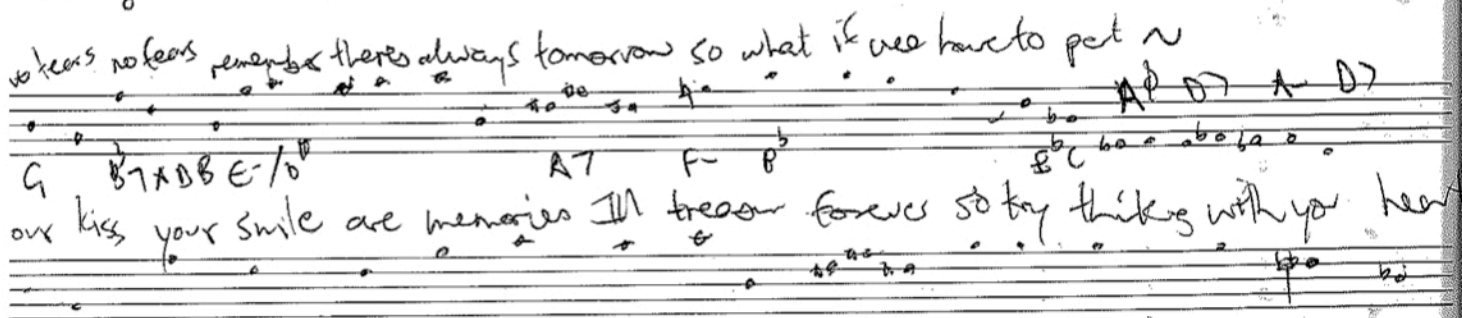 no tears no fears remember theres always tomorrow so what if wee have to part ~
A D7 A- D7
G B7 E-/D A7 F- Bb Eb C
our kiss your smile are memories Ill treasur forever so try thinking with your heart